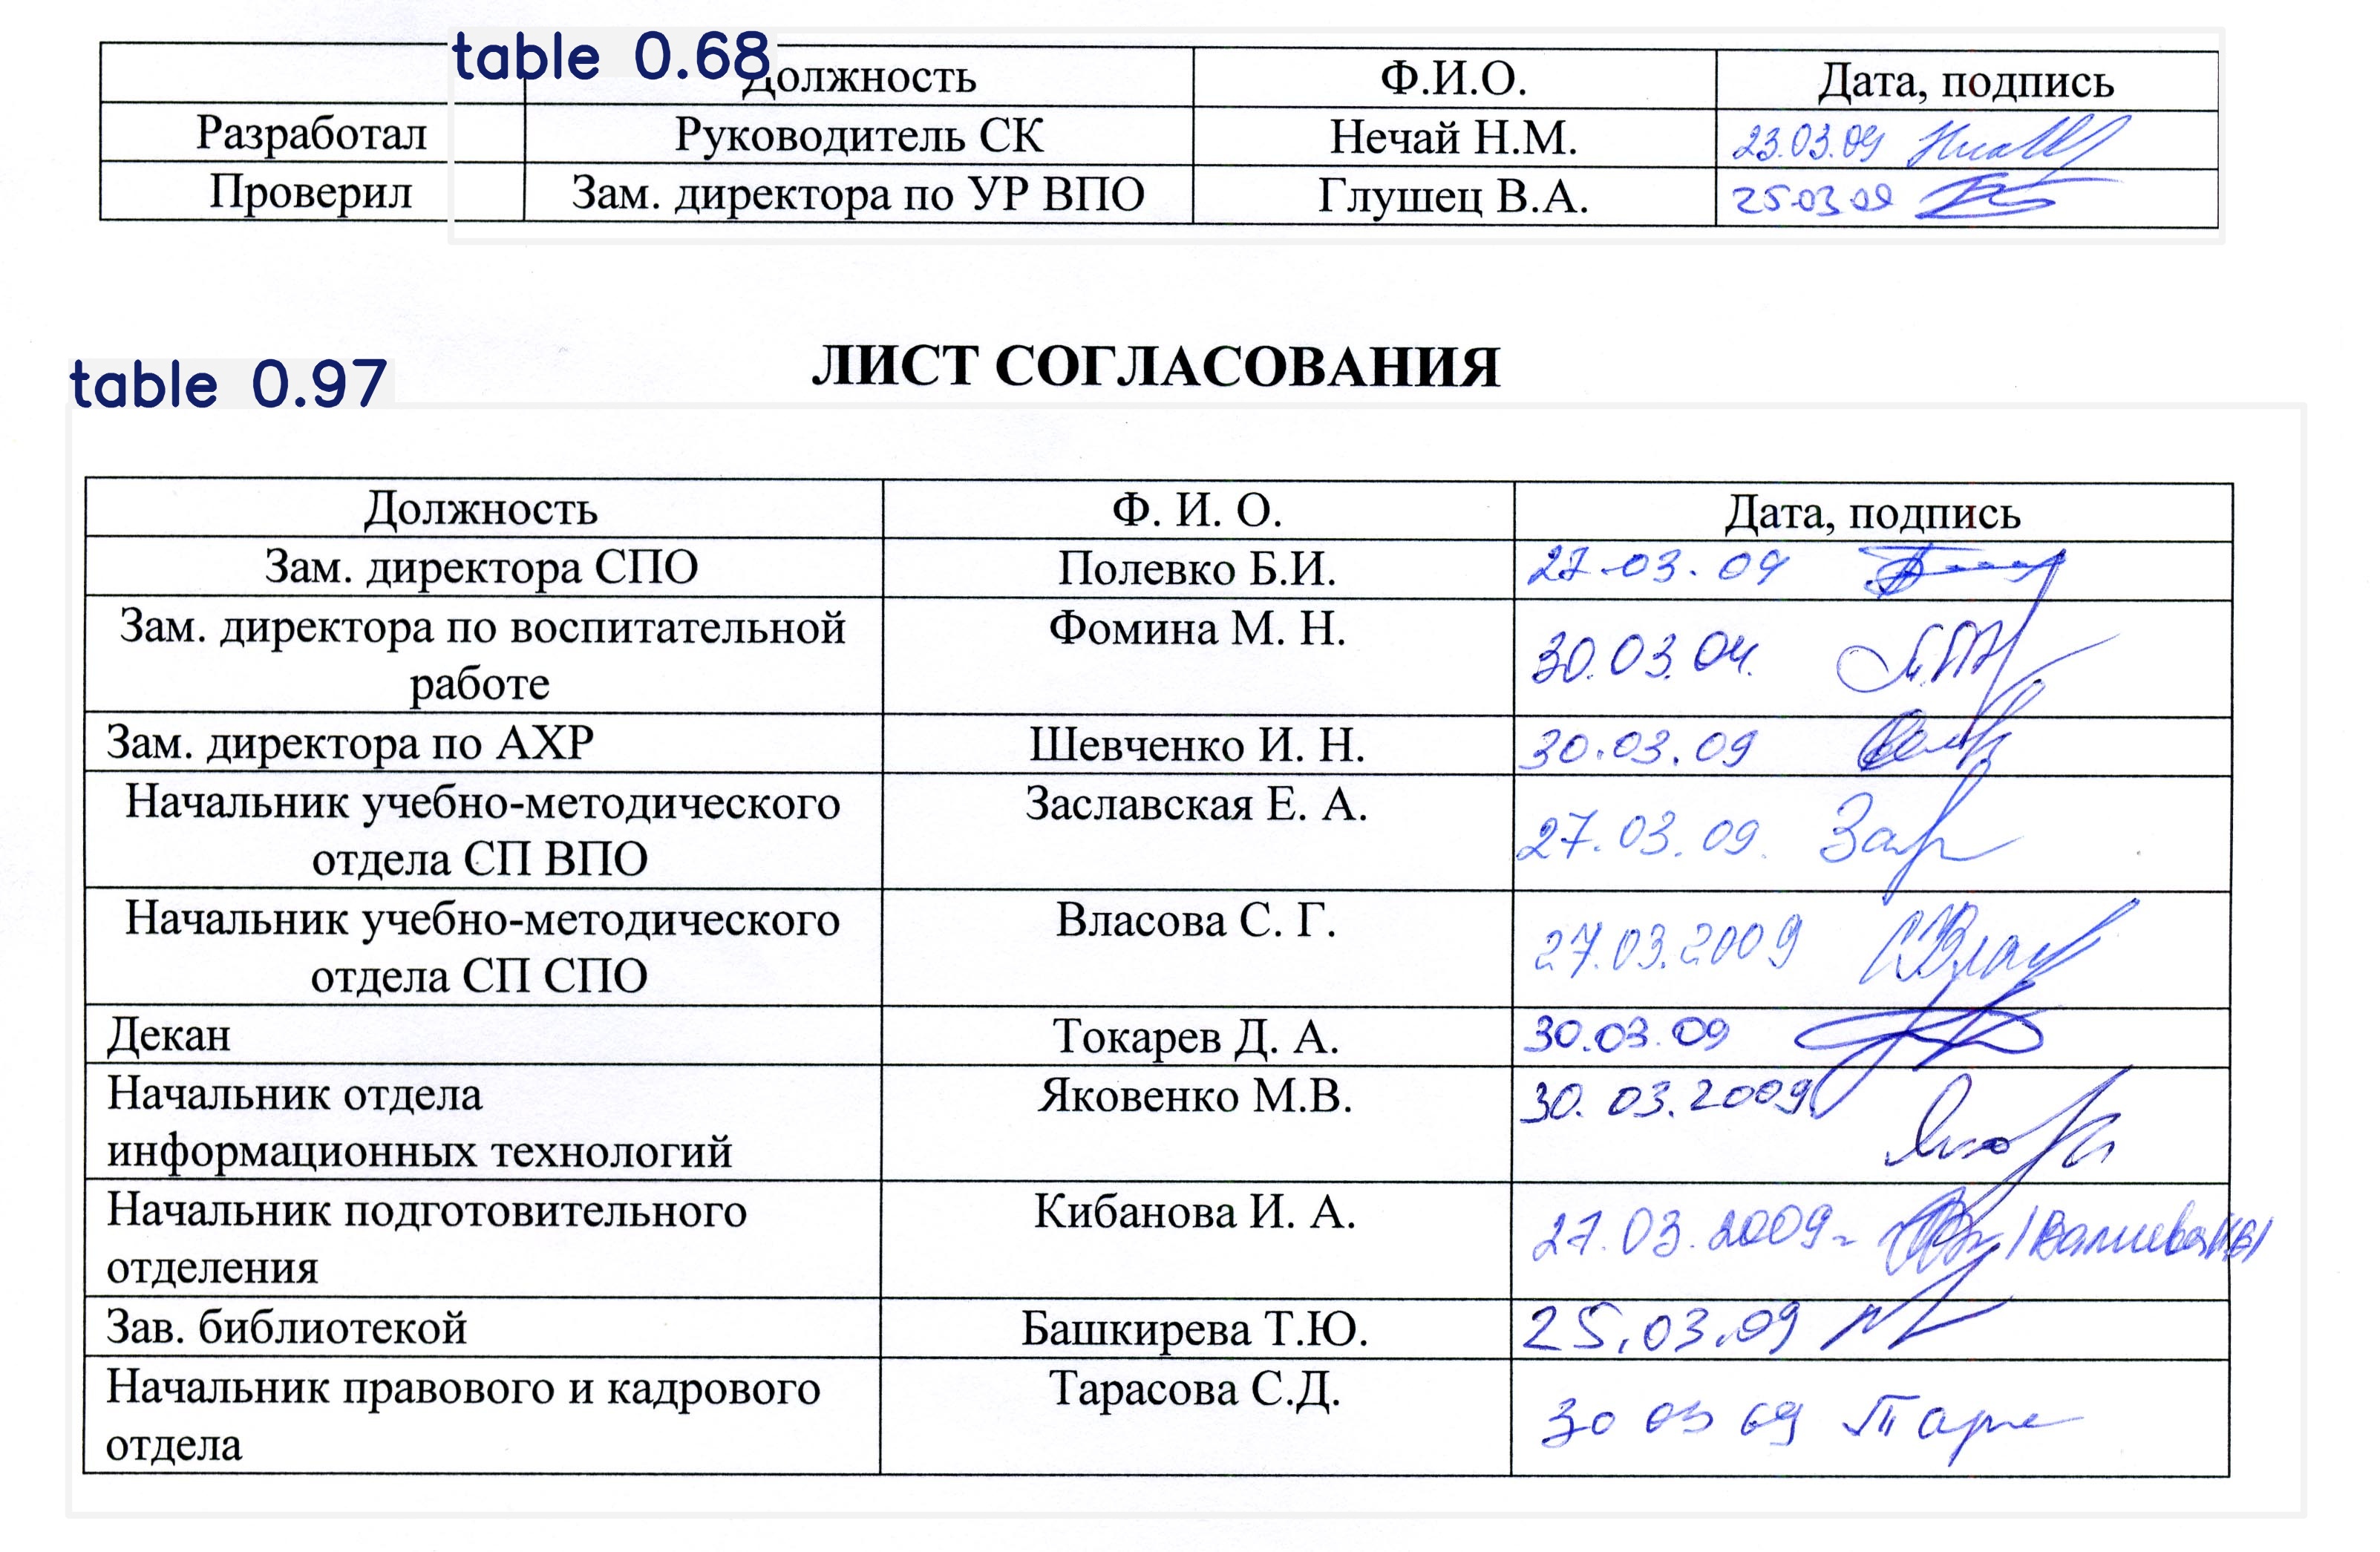 table 0.68
Должность Ф.И.О. Дата, подпись
Разработал Руководитель СК Нечай Н.М. 23.03.09
Проверил Зам. директора по УР ВПО Глушец В.А. 25 03 09
ЛИСТ СОГЛАСОВАНИЯ
table 0.97
Должность Ф. И. О. Дата, подпись
Зам. директора СПО Полевко Б.И. 27.03.09
Зам. директора по воспитательной Фомина М. Н. 30.03.04.
работе
Зам. директора по АХР Шевченко И. Н. 30.03.09
Начальник учебно-методического Заславская Е. А. 27.03.09.
отдела СП ВПО
Начальник учебно-методического Власова С. Г. 27.03.2009
отдела СП СПО
Декан Токарев Д. А. 30.03.09
Начальник отдела Яковенко М.В. 30.03.2009
информационных технологий
Начальник подготовительного Кибанова И. А. 27.03.2009
отделения
Зав. библиотекой Башкирева Т.Ю. 25.03.09
Начальник правового и кадрового Тарасова С.Д. 30 03 09
отдела